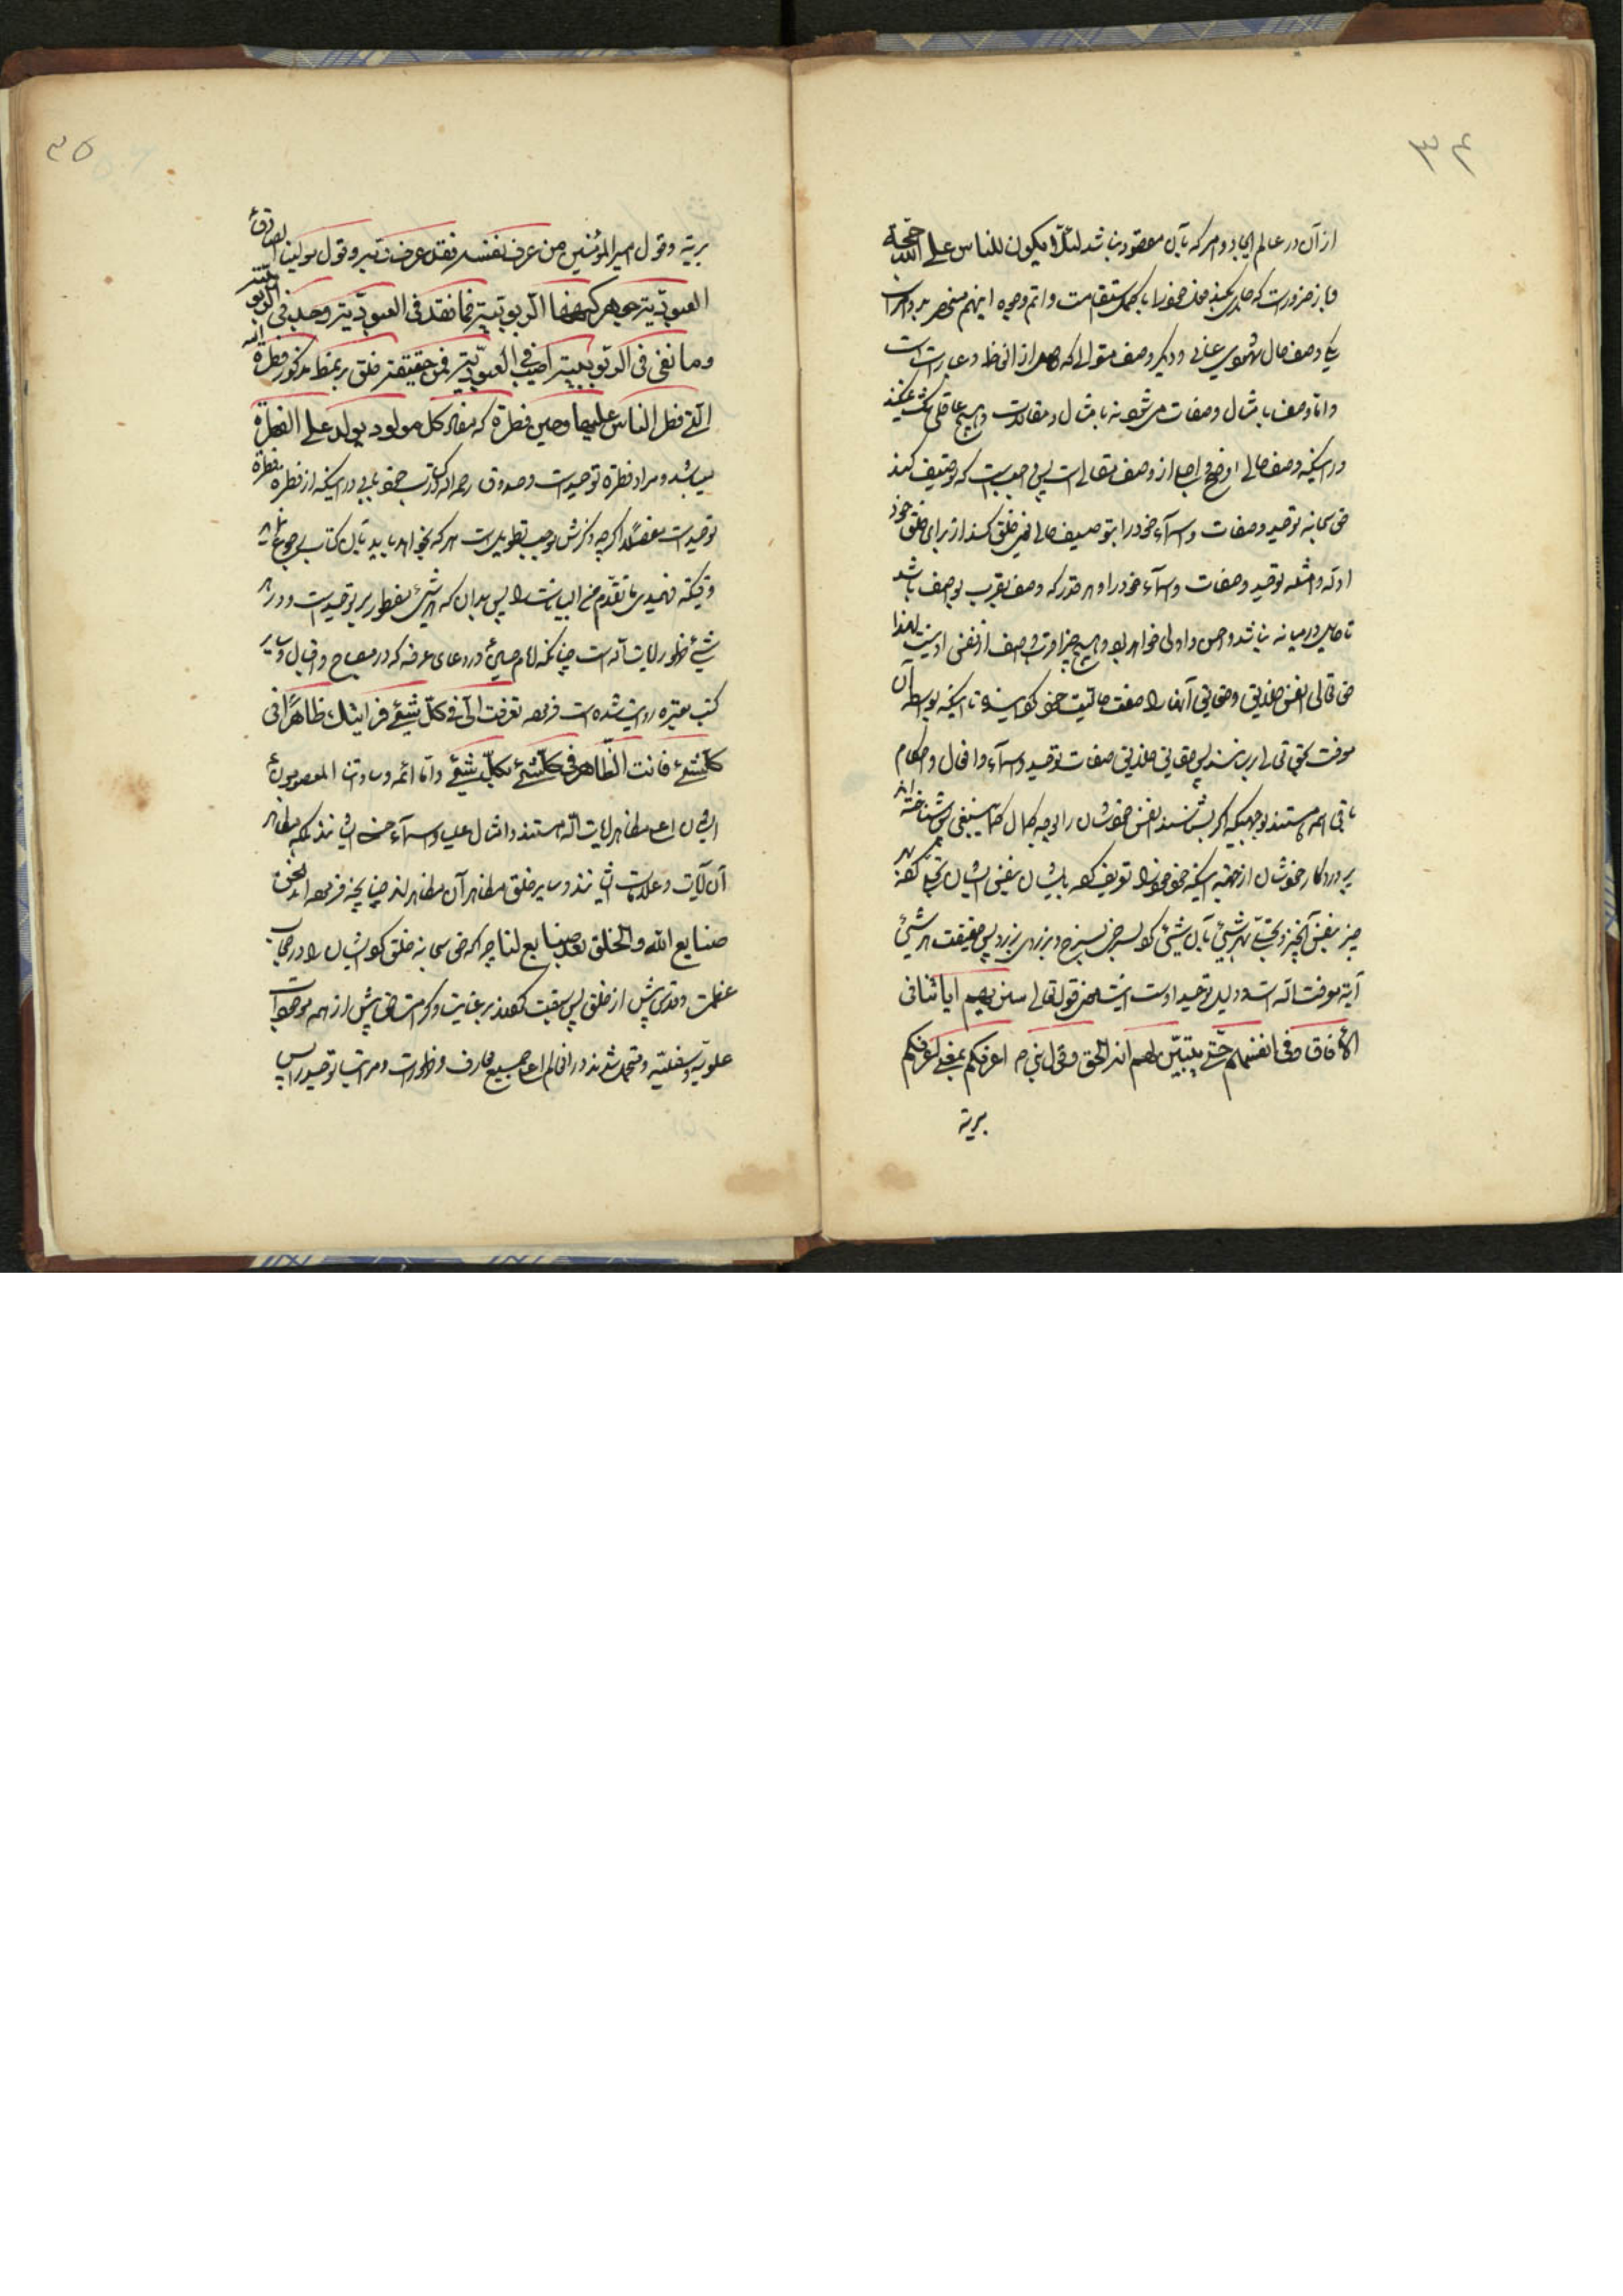 ۳۴
از آن در عالم ایجاد و امر که بآن مقصود نباشد لئلّا یکون للناس علی الله حجة
و باز ضرورت که جاری کند خود را باکمل استقامت و اتم وجوه اینهم منحصر بدو امر است
یکی وصف حال شهودی عیانی و دیگر وصف مقالی که حاصل از الفاظ و عبارات است
و اما وصف بامثال و صفات می شود نه بامثال و مقالات و هیچ عاقلی شک نمیکند
در اینکه وصف حالی اوضح و اجلی از وصف مقالی است پس واجب است که توصیف کند
حق سبحانه توحید و صفات و اسماء خود را بتوصیف حالی یعنی خلق کند از برای خلق خود
ادله و امثله توحید و صفات و اسماء خود را و هر قدر که وصف بقرب بوصف باشد
تا حایل در میانه نباشد احسن و اولی خواهد بود و هیچ چیز اقرب بوصف از نفس او نیست لهذا
حق تعالی نفس خلایق و حقایق آنها را صفت حالیت خود گردانیده تا اینکه بواسطه آن
معرفت بحق تعالی برسند پس حقایق خلایق صفات توحید و اسماء و افعال و احکام
باقی همه هستند بوجهیکه اگر بشناسند نفس خودشان را بوجه کمال کما ینبغی شناخته اند
پروردگار خودشان از جهة اینکه خود خود را تعریف کرده بایشان بنفس ایشان تجلی کرده بهر
چیز بنفس آنچیز و تجلی بهر شیئ بآن شیئ پس حقیقت هر شیئ
آیة معرفت اله است و دلیل توحید اوست اینست معنی قوله تعالی سنریهم ایاتنا فی
الأفاق و فی انفسهم حتّی یتبیّن لهم انه الحق و قول نبی ص اعرفکم بنفسه اعرفکم
بربه
۳۵
بربه و قول امیر المؤمنین من عرف نفسه فقد عرف ربه و قول مولینا الصادق ع
العبودیّة جوهرة کنهها الربوبیّة فما فقد فی العبودیّة وجد فی الربوبیّة
و ما خفی فی الربوبیّة اصیب فی العبودیّة فمن حقیقة خلق بر نمط مذکور فطرة الله
الّتی فطر الناس علیها و همین فطرة که مفاد کل مولود یولد علی الفطرة
میباشد و مراد فطرة توحید است و صدوق رحمه الله در کتاب خود بابی در اینکه از فطره فطرة
توحید است مفصلا اگر چه ذکرش موجب تطویل است هر که بخواهد باید بآن کتاب رجوع نماید
وقتیکه فهمیدی ما تقدّم من البیانات را پس بدان که هر شیئ مفطور بر توحید است و در هر
شیئ ظهور آیات اله است چنانکه امام حسین ع در دعای عرفه که در مصباح و اقبال و سایر
کتب معتبره روایت شده است فرموده تعرّفت الیّ فی کلّ شیئ فرایتک ظاهرًا فی
کلّ شیئ فانت الظّاهر فی کلّ شیئ لکلّ شیئ و اما ائمه و ساداتنا المعصومون ع
ایشان اعظم مظاهر آیات اله هستند و امثال علیا و اسماء حسنی ایشانند که مظاهر
آن آیات و علامات ایشانند و سایر خلق مظاهر آن مظاهرند چنانچه فرموده اند نحن
صنایع الله و الخلق بعد صنایع لنا چرا که حق سبحانه خلق کرد ایشان را در حجاب
عظمت و قدس پیش از خلق پس سبقت کردند بر عنایت و کرامت حق پیش از همه موجودات
علویّه و سفلیّه و متحمل شدند در انعالم اعلی جمیع معارف و ظهورات و مراتب توحید را پس